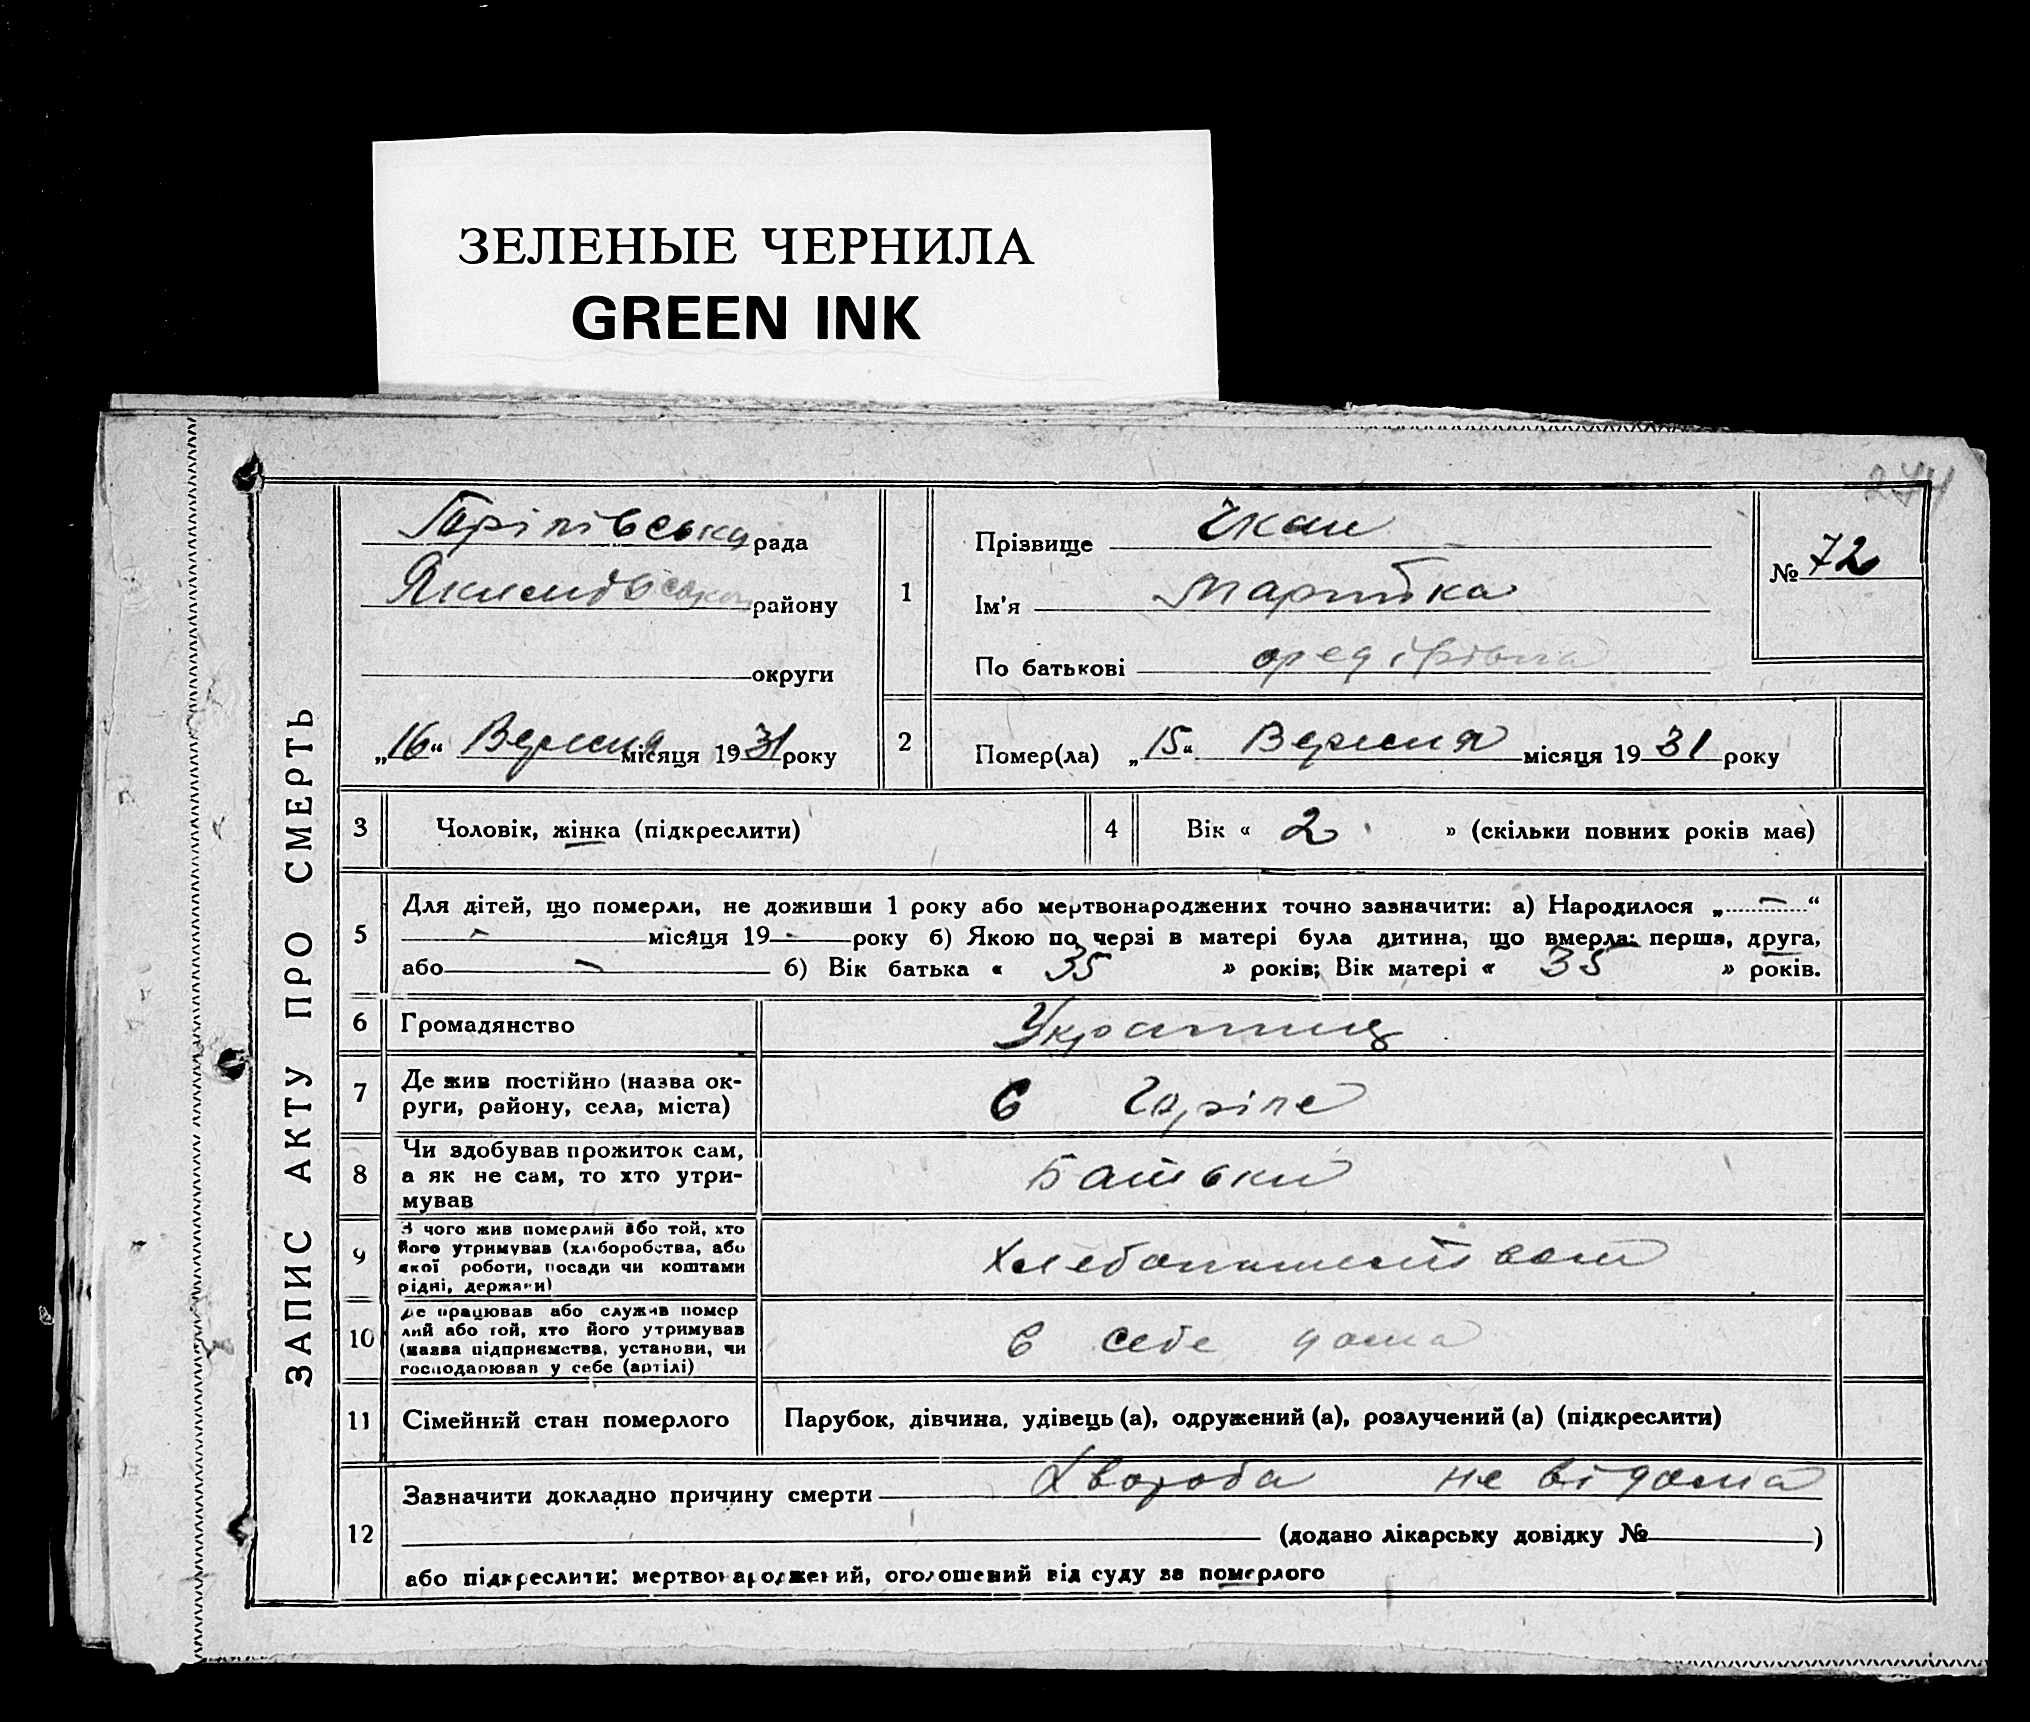 ЗЕЛЕНЫЕ ЧЕРНИЛА
GREEN INK
274
ЗАПИС АКТУ ПРО СМЕРТЬ
Горіпівська рада
району
округи
„16“ Вересня місяця 1931 року
1
Прізвище Чкан
Ім'я
По батькові
№ 72
2
Помер(ла) „15“ Вересня місяця 1931 року
3
Чоловік, жінка (підкреслити)
4
Вік « 2 » (скільки повних років має)
5
Для дітей, що померли, не доживши 1 року або мертвонароджених точно зазначити: а) Народилося „ – “
– місяця 19 – року б) Якою по черзі в матері була дитина, що вмерла: перша, друга,
або – б) Вік батька « 35 » років; Вік матері « 35 » років.
6
Громадянство
7
Де жив постійно (назва ок-
руги, району, села, міста)
в Горіпе
8
Чи здобував прожиток сам,
а як не сам, то хто утри-
мував
Батьки
9
З чого жив померлий або той, хто
його утримував (хліборобства, або
якої роботи, посади чи коштами
рідні, держави)
10
Де працював або служив помер
лий або той, хто його утримував
(назва підприємства, установи, чи
господарював у себе (артілі)
в себе дома
11
Сімейний стан померлого
Парубок, дівчина, удівець (а), одружений (а), розлучений (а) (підкреслити)
12
Зазначити докладно причину смерти Хвороба не відома
(додано лікарську довідку № )
або підкреслити: мертвонароджений, оголошений від суду за померлого